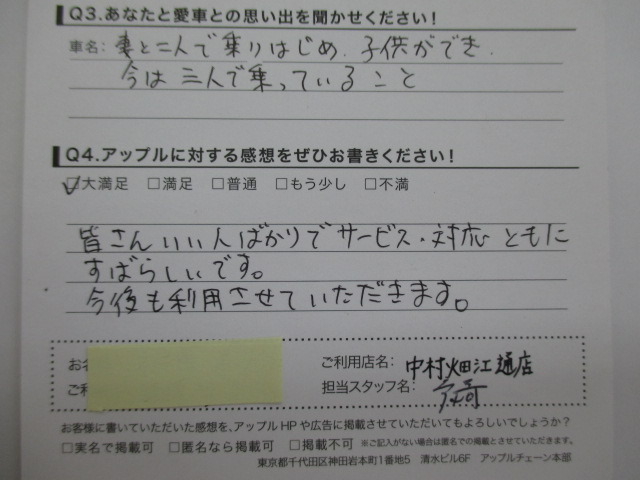 Q3.あなたと愛車との思い出を聞かせください!
車名: 妻と二人で乗りはじめ、子供ができ、
今は三人で乗っていること
Q4.アップルに対する感想をぜひお書きください!
☑大満足 □満足 □普通 □もう少し □不満
皆さんいい人ばかりでサービス・対応ともに
すばらしいです。
今後も利用させていただきます。
お名
ご利用店名: 中村畑江通店
ご利
担当スタッフ名:
お客様に書いていただいた感想を、アップルHPや広告に掲載させていただいてもよろしいでしょうか?
□実名で掲載可 □匿名なら掲載可 □掲載不可 ※ご記入がない場合は匿名での掲載とさせていただきます。
東京都千代田区神田岩本町1番地5 清水ビル6F アップルチェーン本部